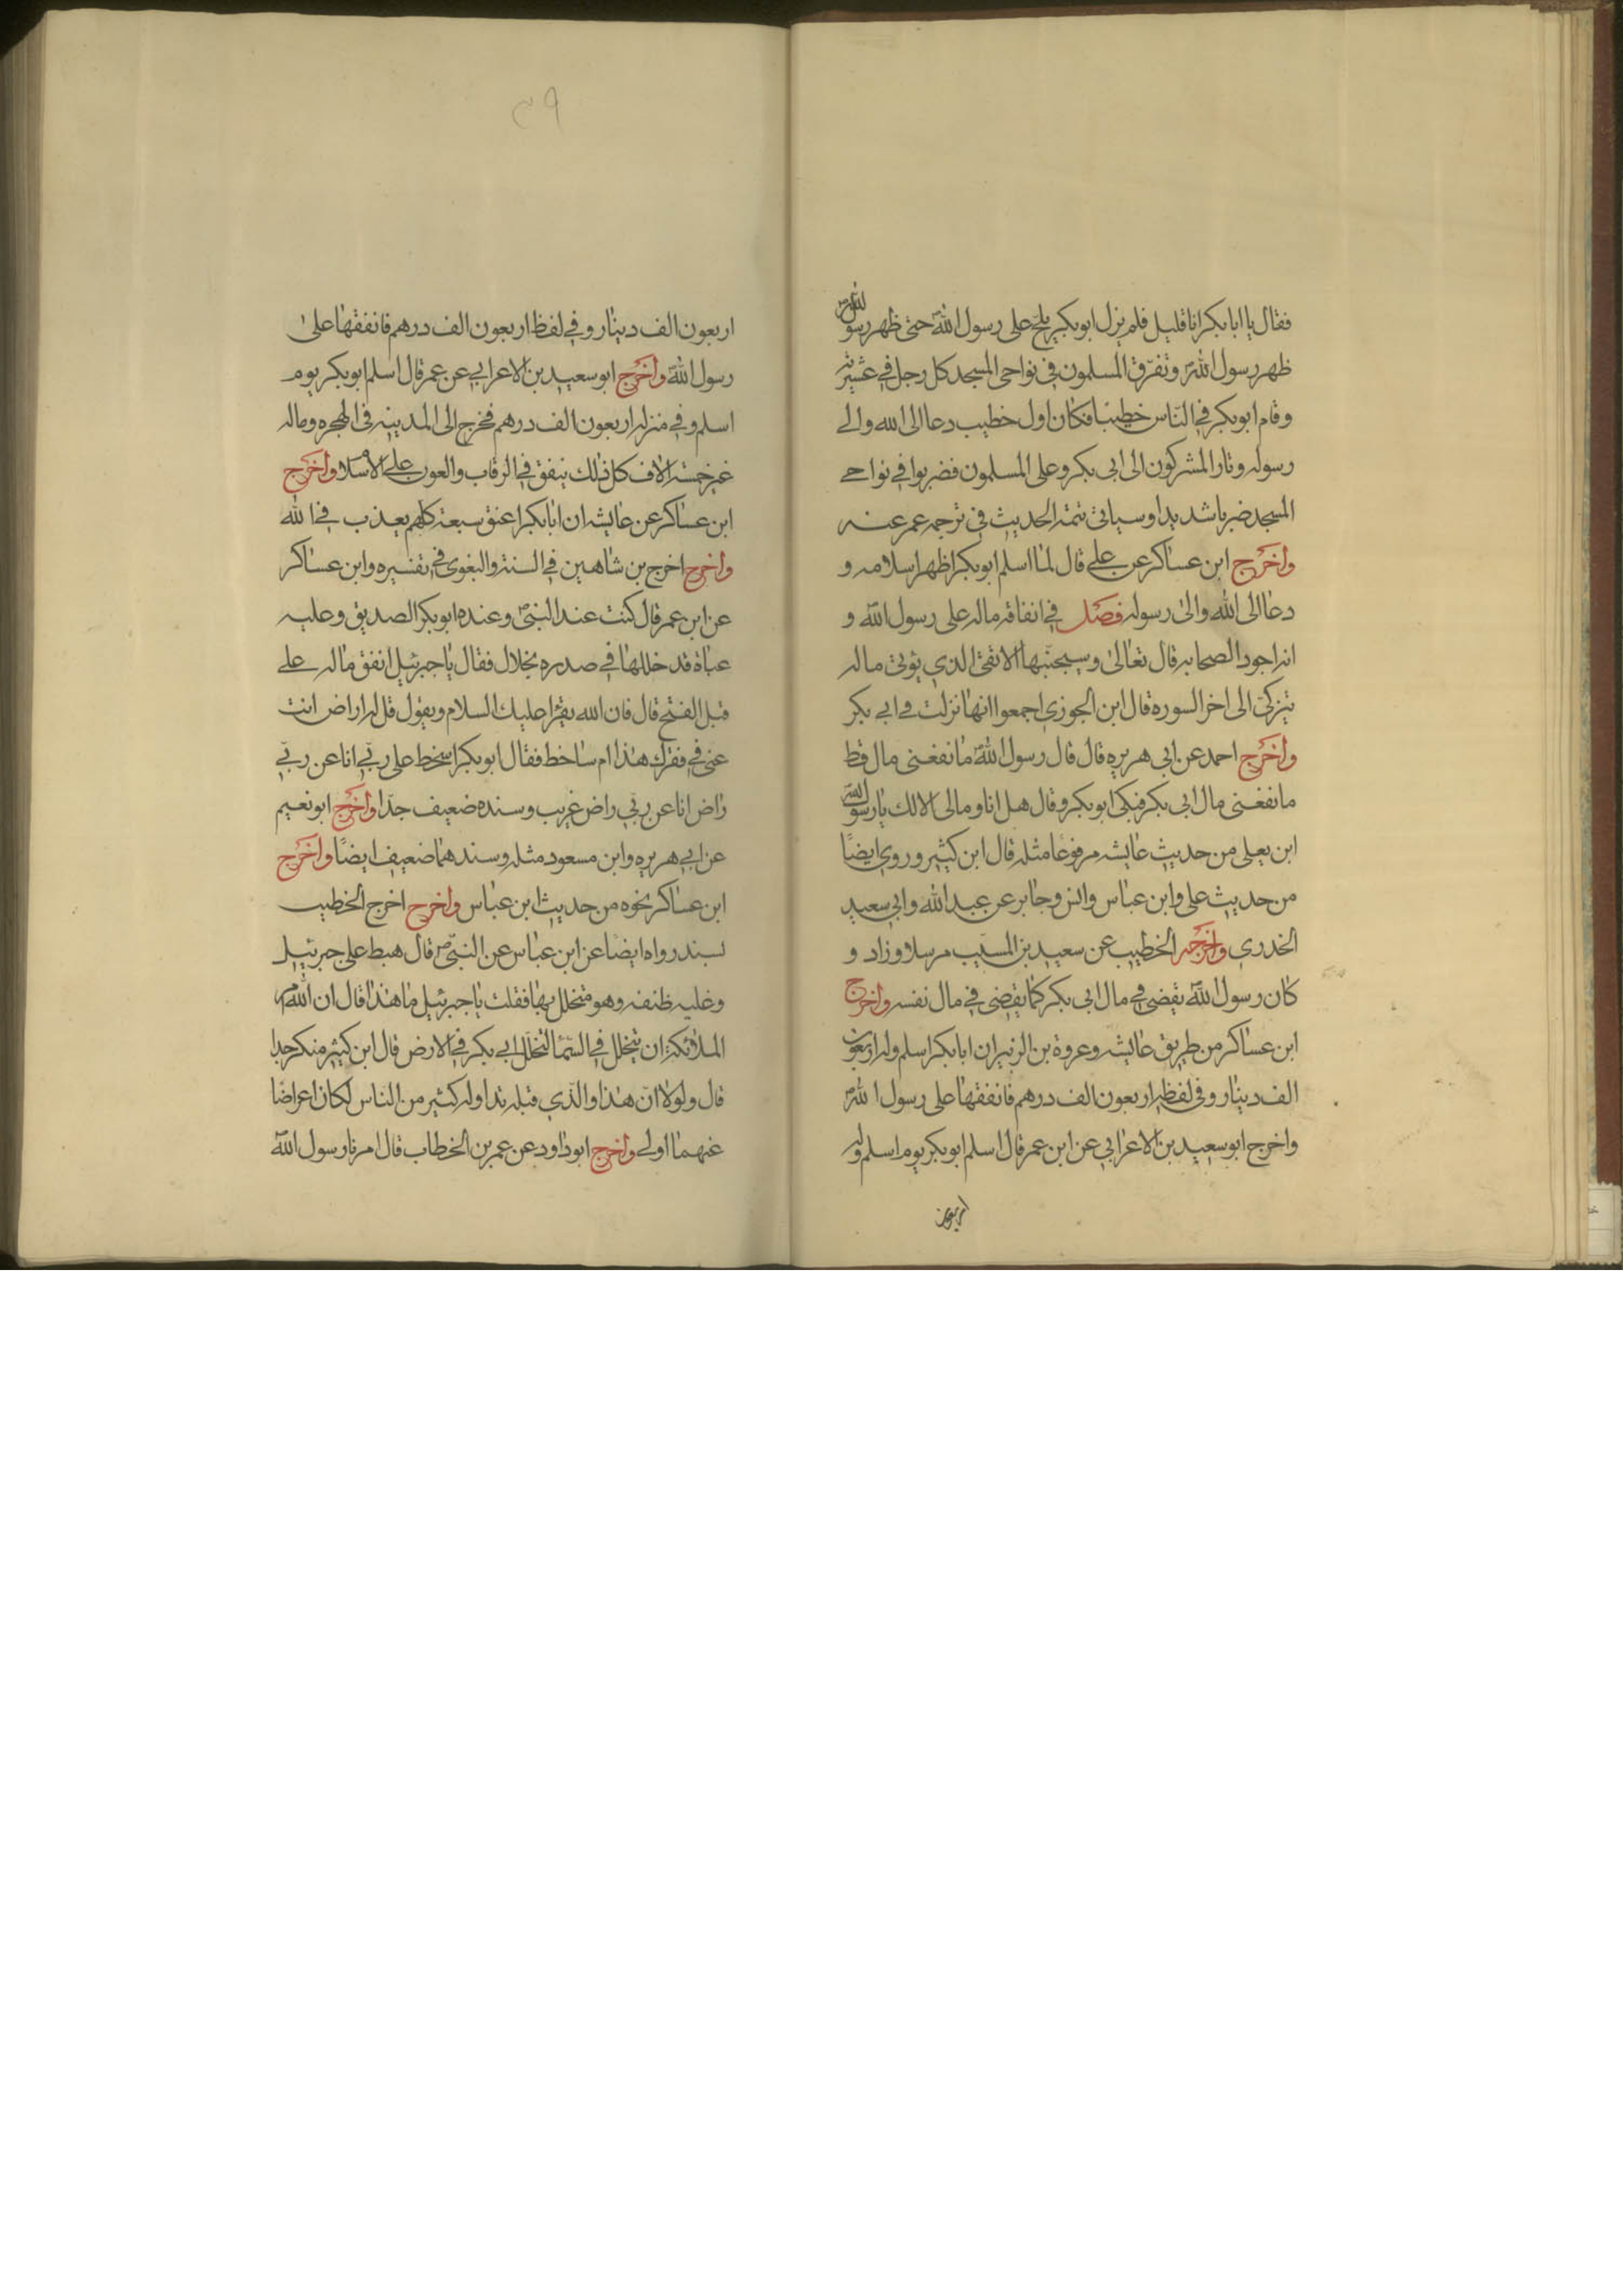 فقال يا ابا بكر انا قليل فلم يزل ابو بكر يلح على رسول الله حتى ظهر رسول الله
ظهر رسول الله وتفرق المسلمون في نواحي المسجد كل رجل في عشيرته
وقام ابو بكر في الناس خطيبا فكان اول خطيب دعا الى الله والي
رسوله وثار المشركون الى ابى بكر وعلى المسلمون فضربوا في نواحي
المسجد ضربا شديدا وسياتي تتمة الحديث في ترجمه عمر عنه
واخرج ابن عساكر عن علي قال لما اسلم ابو بكر اظهر اسلامه و
دعا الى الله والى رسوله فصل في انفاقه ماله على رسول الله و
انه اجود الصحابه قال تعالى وسيجنبها الاتقى الذي يؤتى ماله
يتزكى الى اخر السوره قال ابن الجوزي اجمعوا انها نزلت في ابي بكر
واخرج احمد عن ابى هريره قال قال رسول الله ما نفعنى مال قط
ما نفعنى مال ابى بكر فبكى ابو بكر وقال هل انا ومالى الا لك يا رسول الله
ابن يعلى من حديث عايشه مرفوعا مثله قال ابن كثير وروي ايضًا
من حديث على وابن عباس وانس وجابر عن عبد الله وابي سعيد
الخدري واخرجه الخطيب عن سعيد بن المسيب مرسلا وزاد و
كان رسول الله يقضى في مال ابى بكر كما يقضى في مال نفسه واخرج
ابن عساكر من طريق عايشه وعروة بن الزبير ان ابا بكر اسلم وله اربعون
الف دينار وفى لفظ اربعون الف درهم فانفقها على رسول الله
واخرج ابو سعيد بن الاعرابي عن ابن عمر قال اسلم ابو بكر يوم اسلم وله
اربعون
٣٩
اربعون الف دينار وفي لفظ اربعون الف درهم فانفقها على
رسول الله واخرج ابو سعيد بن الاعرابي عن عمر قال اسلم ابو بكر يوم
اسلم وفي منزله اربعون الف درهم فخرج الى المدينه فى الهجره وماله
غير خمسة الاف كل ذلك ينفق في الرقاب والعون على الاسلام واخرج
ابن عساكر عن عايشه ان ابا بكر اعتق سبعة كلهم يعذب في الله
واخرج اخرج بن شاهين في السنة والبغوى في تفسيره وابن عساكر
عن ابن عمر قال كنت عند النبي وعنده ابو بكر الصديق وعليه
عباة قد خللها في صدره بخلال فقال يا جبرئيل انفق ماله علي
قبل الفتح قال فان الله يقرا عليك السلام ويقول قل له اراض انت
عنى في فقرك هذا ام ساخط فقال ابو بكر اسخط على ربي انا عن ربي
راض انا عن ربي راض غريب وسنده ضعيف جدا واخرج ابو نعيم
عن ابي هريره وابن مسعود مثله وسندهما ضعيف ايضًا واخرج
ابن عساكر نحوه من حديث ابن عباس واخرج اخرج الخطيب
بسند رواه ايضا عن ابن عباس عن النبي قال هبط على جبرئيل
وعليه طنفه وهو متخلل بها فقلت يا جبرئيل ما هذا قال ان الله امر
الملائكة ان يتخلل في السما لتخلل ابي بكر في الارض قال ابن كثير منكر جدا
قال ولولا ان هذا والذي قبله تداوله كثير من الناس لكان اعراضا
عنهما اولي واخرج ابو داود عن عمر بن الخطاب قال امرنا رسول الله